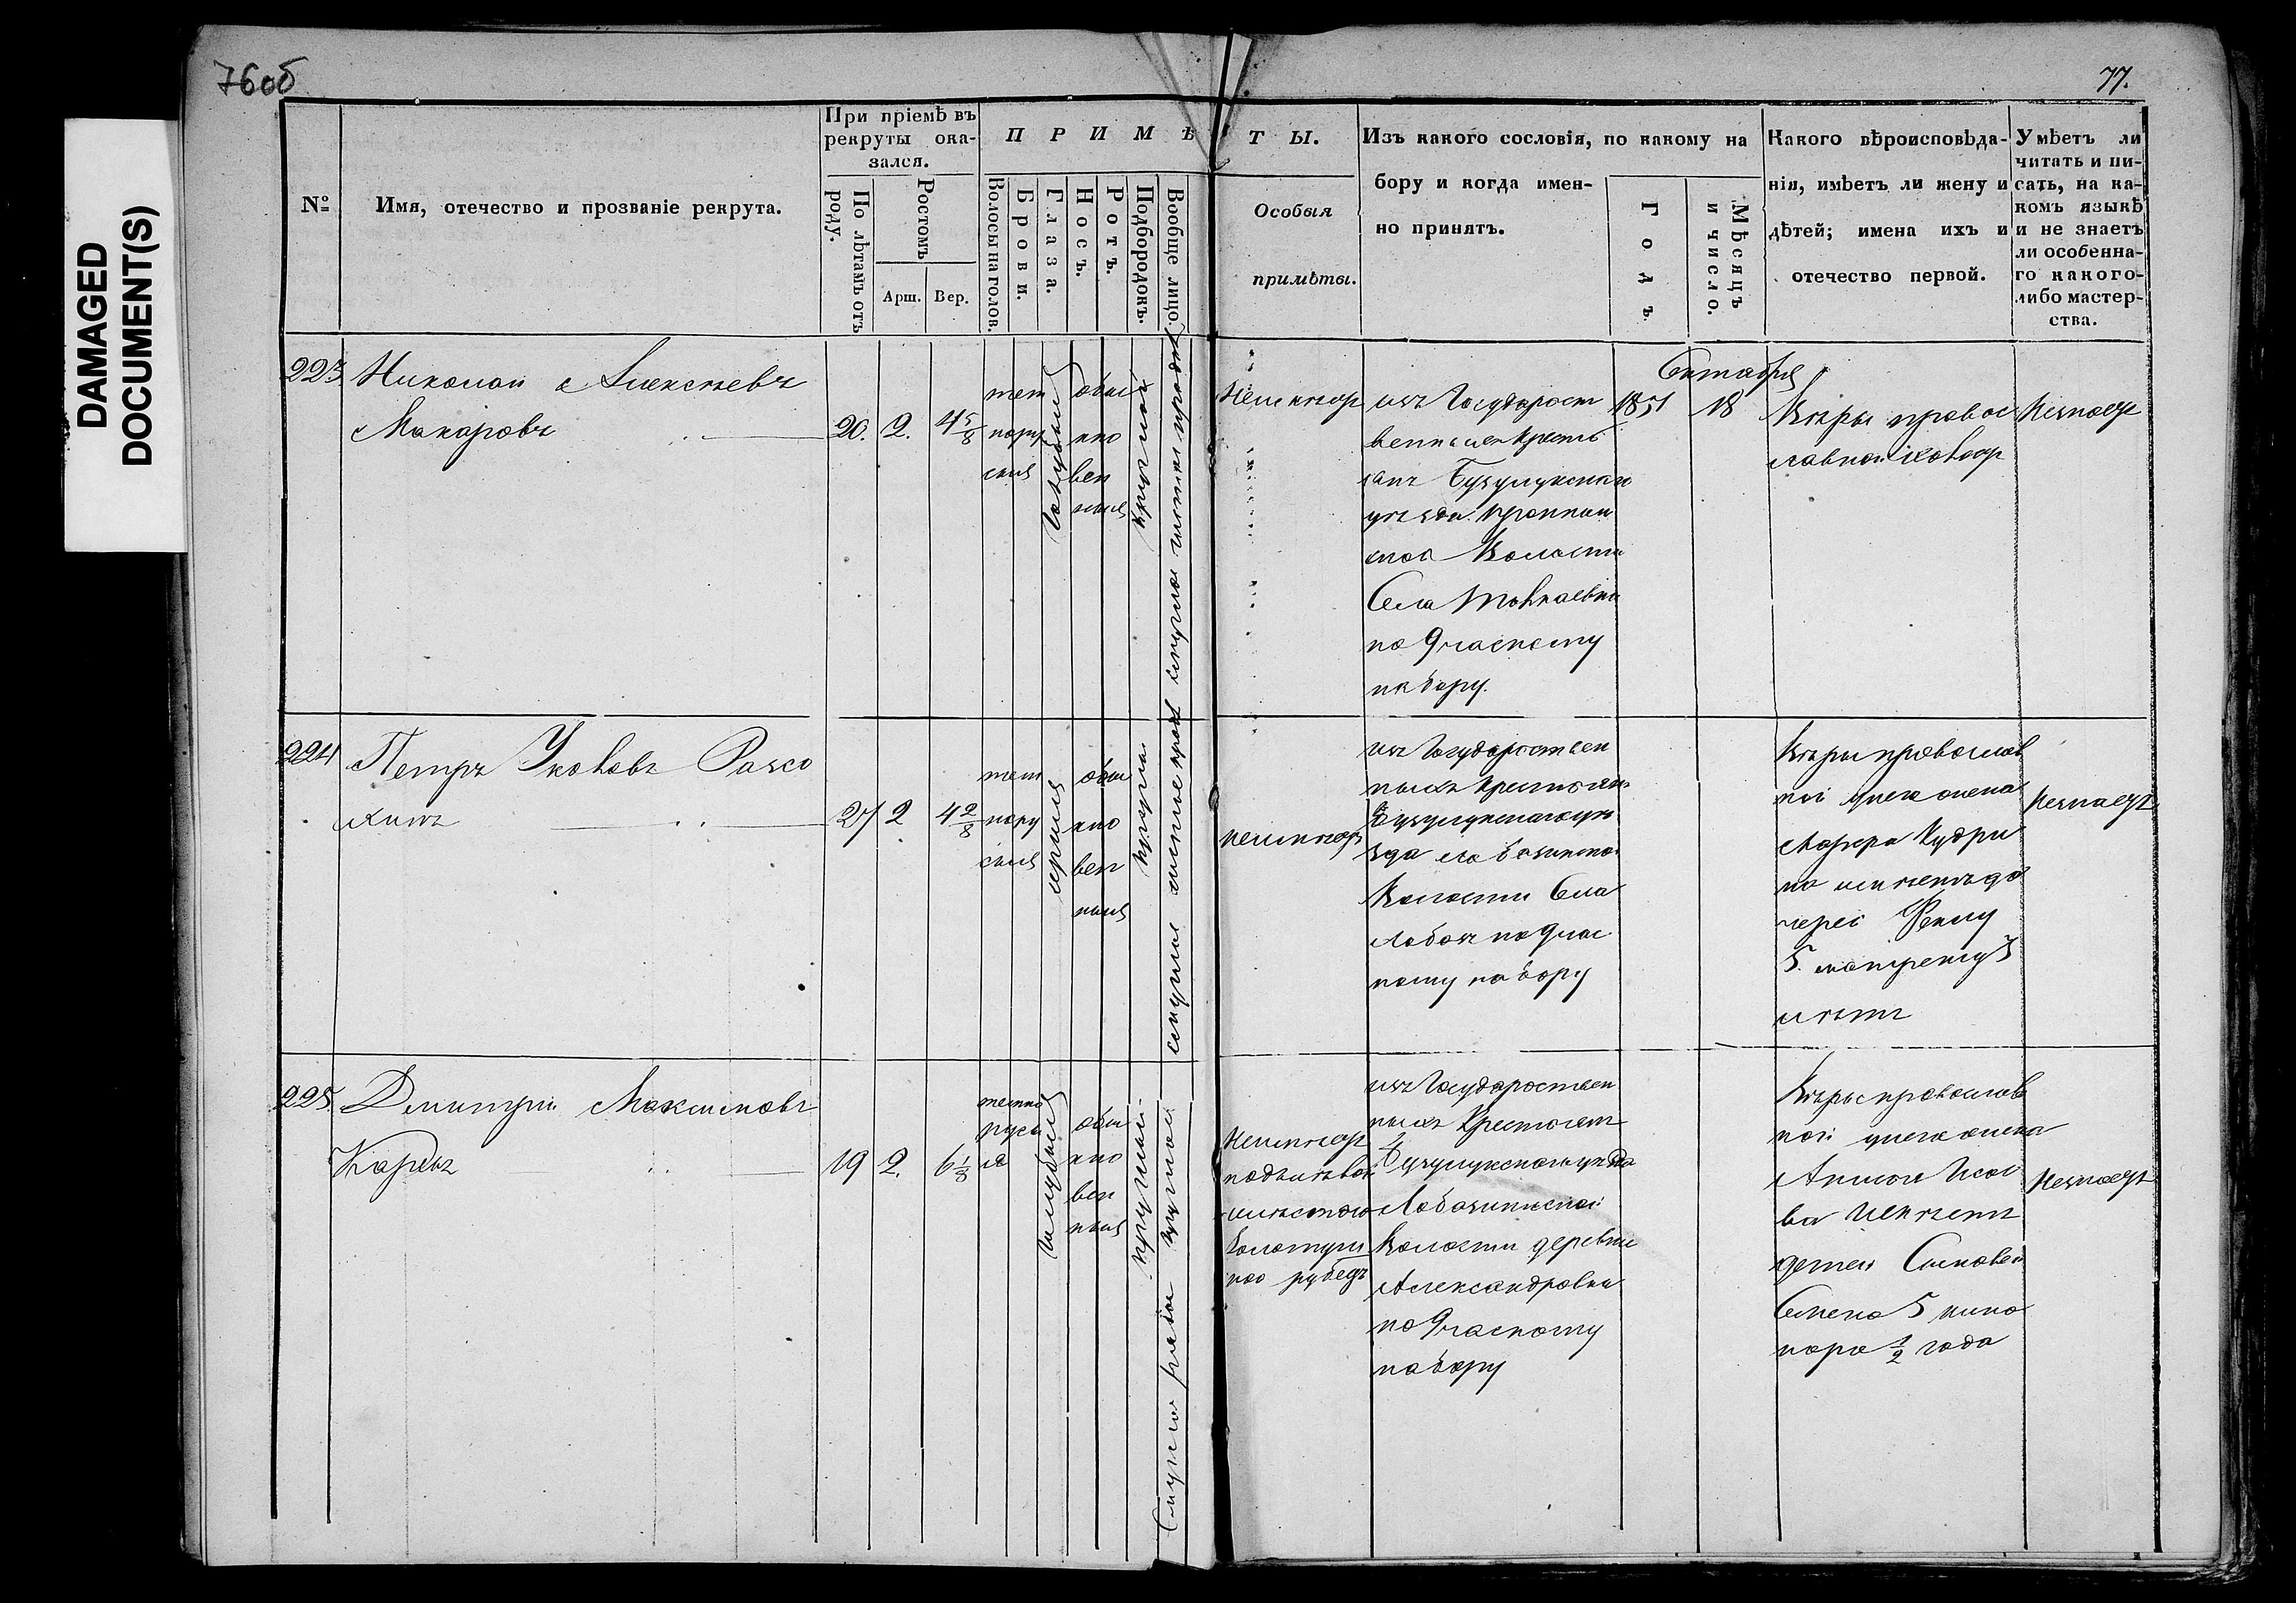 76об
77.
DAMAGED
DOCUMENT(S)
№
Имя, отечество и прозваніе рекрута.
При пріемѣ въ
рекруты ока-
зался.
По лѣтамъ отъ
роду.
Ростомъ
Арш.
Вер.
ПРИМѢТЫ.
Волосы на голов.
Брови.
Глаза.
Носъ.
Ротъ.
Подбородокъ.
Вообще лицо.
Особыя
примѣты.
Изъ какого сословія, по какому на
бору и когда имен-
но принятъ.
Годъ.
Мѣсяцъ
и число.
Какого вѣроисповѣда-
нія, имѣетъ ли жену и
дѣтей; имена ихъ и
отечество первой.
Умѣетъ ли
читать и пи-
сать, на ка-
комъ языкѣ
и не знаетъ
ли особенна-
го какого-
либо мастер-
ства.
223
Николай Алексѣевъ
Макаровъ
20.
2.
4 5/8
тем
нору
сыя
голубыя
обы
кно
вен
ныя
круглой
смуглое чистое
Неимѣет
изъ Государст
венныхъ кресть
янъ Бузулукскаго
уѣзда
ской Волости
Села
по 9 частному
набору.
Октября
1851
18
Вѣры правос
лавной холост
Незнает
224
Петръ Яковъ Разсо
кинъ
27
2
4 2/8
тем
нору
сыя
обы
кно
вен
ныя
круглы
смуглое
неимѣетъ
изъ Государствен
ныхъ крестьянъ
Бузулукскаго уѣ
зда Лобазинской
Волости Села
Лобазъ по 9 час
ному набору
Вѣры православ
ной у него жена
Кудри
на имѣетъ до
черей Феклу
5. матрену 3
лѣтъ
Незнаетъ
225
Дмитрій Максимовъ
Каревъ
19
2.
6 1/8
темно
русы
я
голубыя
обы
кно
вен
ныя
круглый
Смугло рябое круглое
Неимѣет
подъ лѣвой
рубецъ
изъ Государствен
ныхъ Крестьянъ
Бузулукскаго уѣзда
Лобазинской
Волости деревни
Александровки
по 9 частному
набору
Вѣры православ
ной у него жена
ва Имѣетъ
детей Сыновей
Семена 5
1/2 года
Незнаетъ